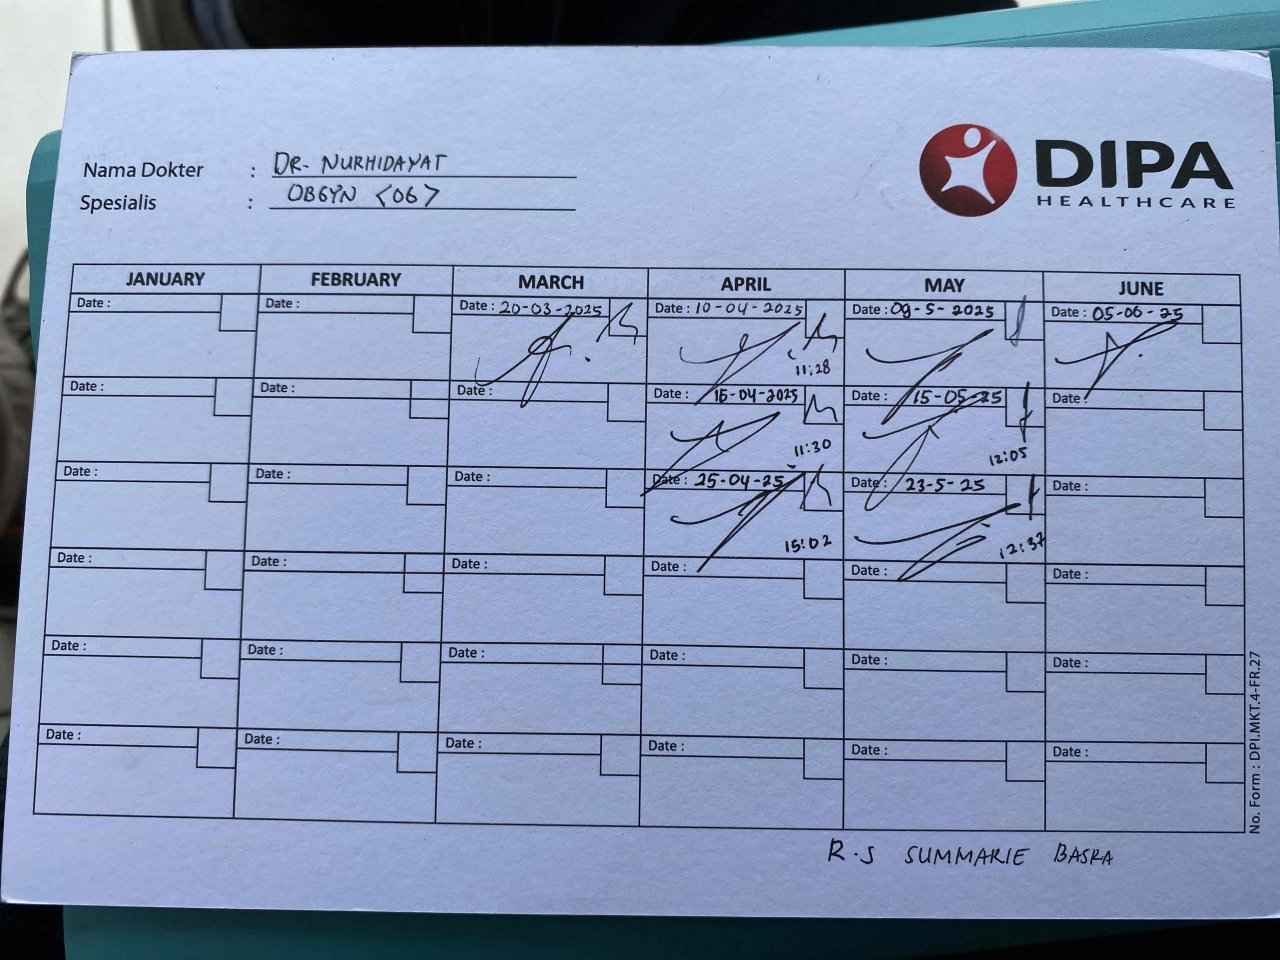 Nama Dokter : DR. NURHIDAYAT
Spesialis : OBGYN <OG>
DIPA
HEALTHCARE
JANUARY FEBRUARY MARCH APRIL MAY JUNE
Date : Date : Date : 20-03-2025 Date : 10-04-2025 Date : 09-5-2025 Date : 05-06-25
11:28
Date : Date : Date : Date : 16-04-2025 Date : 15-05-25 Date :
11:30 12:05
Date : Date : Date : Date : 25-04-25 Date : 23-5-25 Date :
15:02 12:37
Date : Date : Date : Date : Date : Date :
Date : Date : Date : Date : Date : Date :
Date : Date : Date : Date : Date : Date :
No. Form : DPI.MKT.4-FR.27
R.S SUMMARIE BASRA